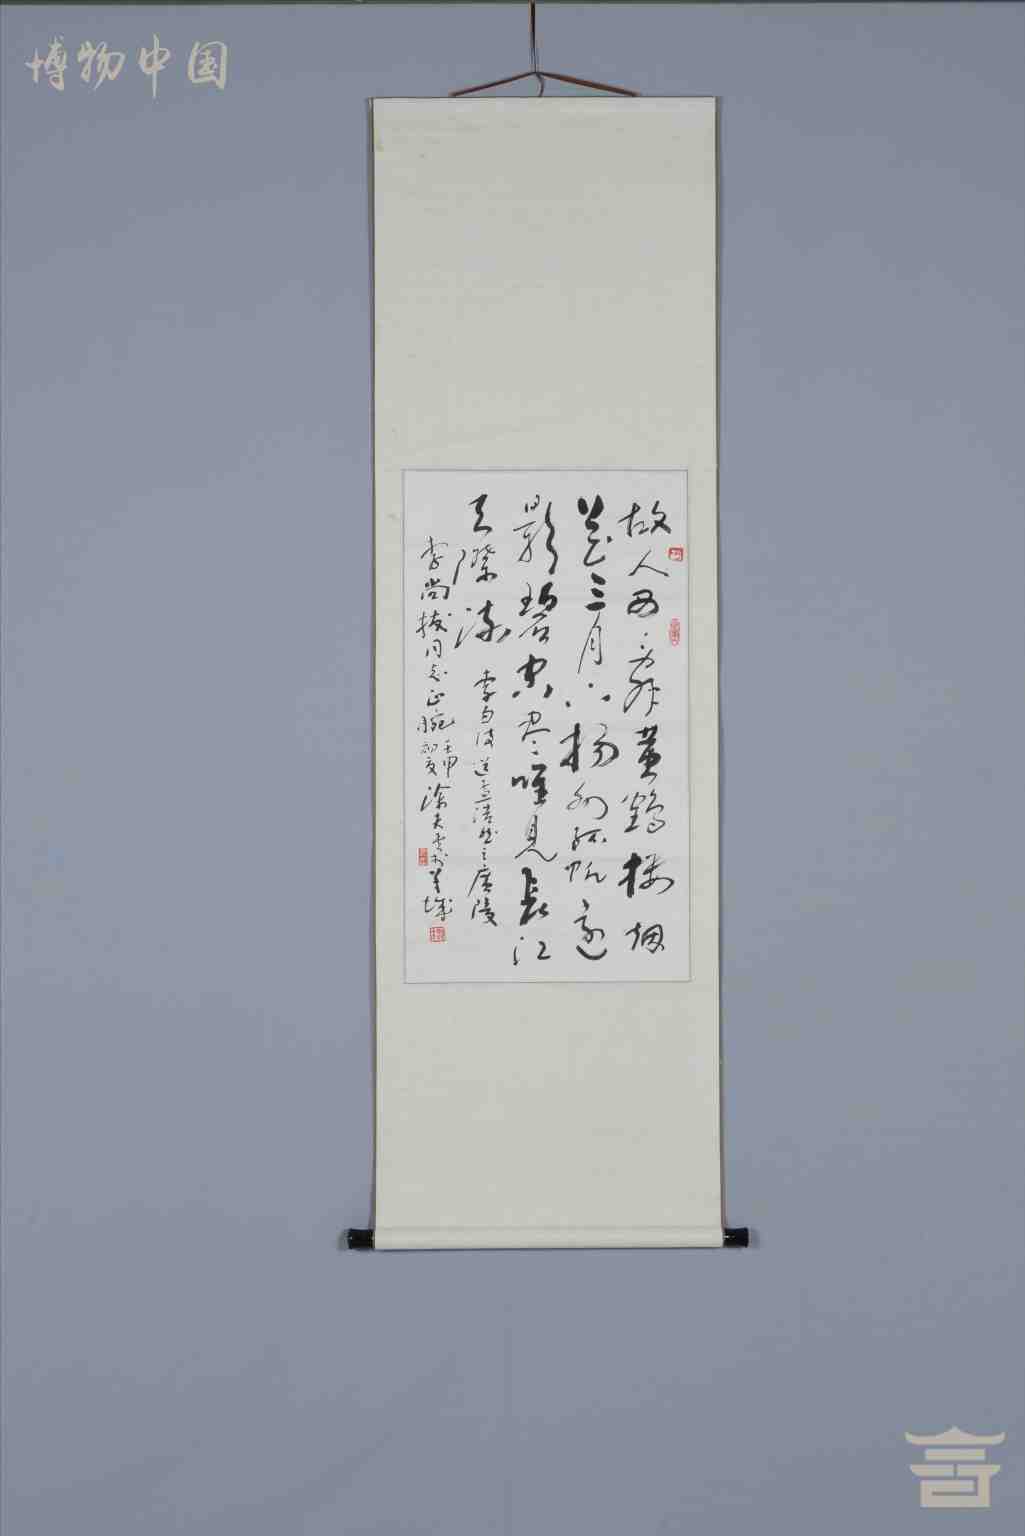 博物中国
故人西辞黄鹤楼烟
花三月下扬州孤帆远
影碧空尽唯见长江
天际流
李白诗送孟浩然之廣陵
李尚 同志正腕
壬申初夏
涂夫 书于 城